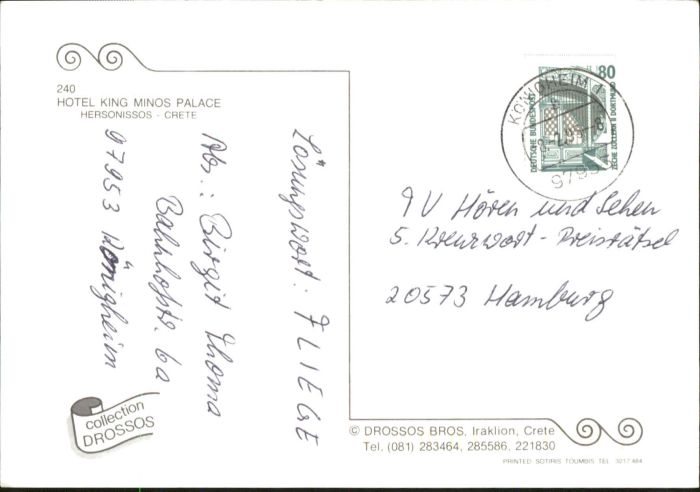 240
HOTEL KING MINOS PALACE
HERSONISSOS - CRETE
Lösungswort: FLIEGE
Abs.: Birgit Thoma
Bahnhofstr. 6a
97953 Königheim
collection
DROSSOS
80
DEUTSCHE BUNDESPOST
ZECHE ZOLLERN II DORTMUND
KÖNIGHEIM 1
TV Hören und Sehen
5. Kreuzwort-Preisrätsel
20573 Hamburg
© DROSSOS BROS, Iraklion, Crete
Tel. (081) 283464, 285586, 221830
PRINTED SOTIRIS TOUMBIS TEL. 3217.484